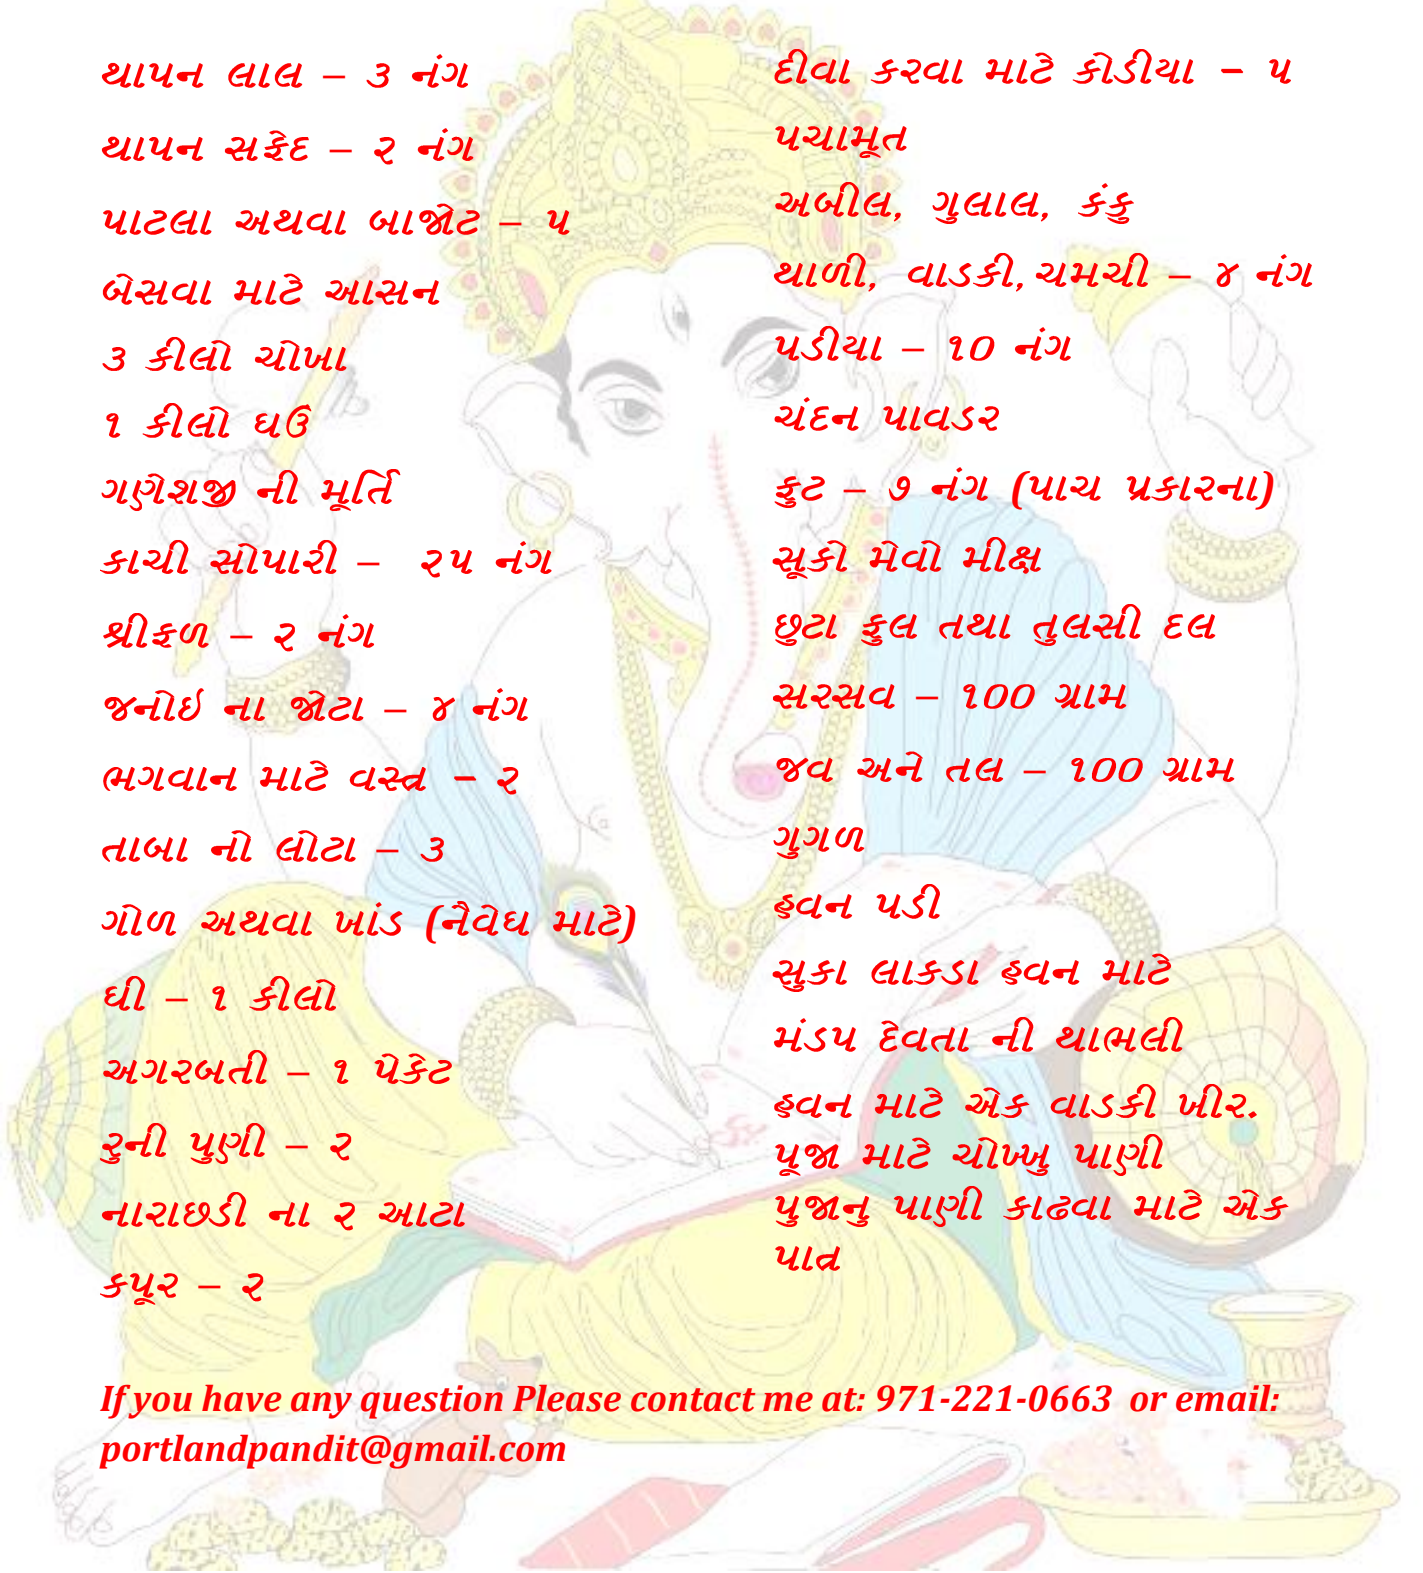 થાપન લાલ – ૩ નંગ
થાપન સફેદ – ૨ નંગ
પાટલા અથવા બાજોટ – ૫
બેસવા માટે આસન
૩ કીલો ચોખા
૧ કીલો ઘઉં
ગણેશજી ની મૂર્તિ
કાચી સોપારી – ૨૫ નંગ
શ્રીફળ – ૨ નંગ
જનોઇ ના જોટા – ૪ નંગ
ભગવાન માટે વસ્ત્ર – ૨
તાબા નો લોટા – ૩
ગોળ અથવા ખાંડ (નૈવેઘ માટે)
ઘી – ૧ કીલો
અગરબતી – ૧ પેકેટ
રુની પુણી – ૨
નારાછડી ના ૨ આટા
કપૂર – ૨
દીવા કરવા માટે કોડીયા – ૫
પચામૂત
અબીલ, ગુલાલ, કંકુ
થાળી, વાડકી, ચમચી – ૪ નંગ
પડીયા – ૧0 નંગ
ચંદન પાવડર
ફુટ – ૭ નંગ (પાચ પ્રકારના)
સૂકો મેવો મીક્ષ
છુટા ફુલ તથા તુલસી દલ
સરસવ – ૧00 ગ્રામ
જવ અને તલ – ૧00 ગ્રામ
ગુગળ
હવન પડી
સુકા લાકડા હવન માટે
મંડપ દેવતા ની થાભલી
હવન માટે એક વાડકી ખીર.
પૂજા માટે ચોખ્ખુ પાણી
પુજાનુ પાણી કાઢવા માટે એક
પાત્ર
If you have any question Please contact me at: 971-221-0663 or email:
portlandpandit@gmail.com